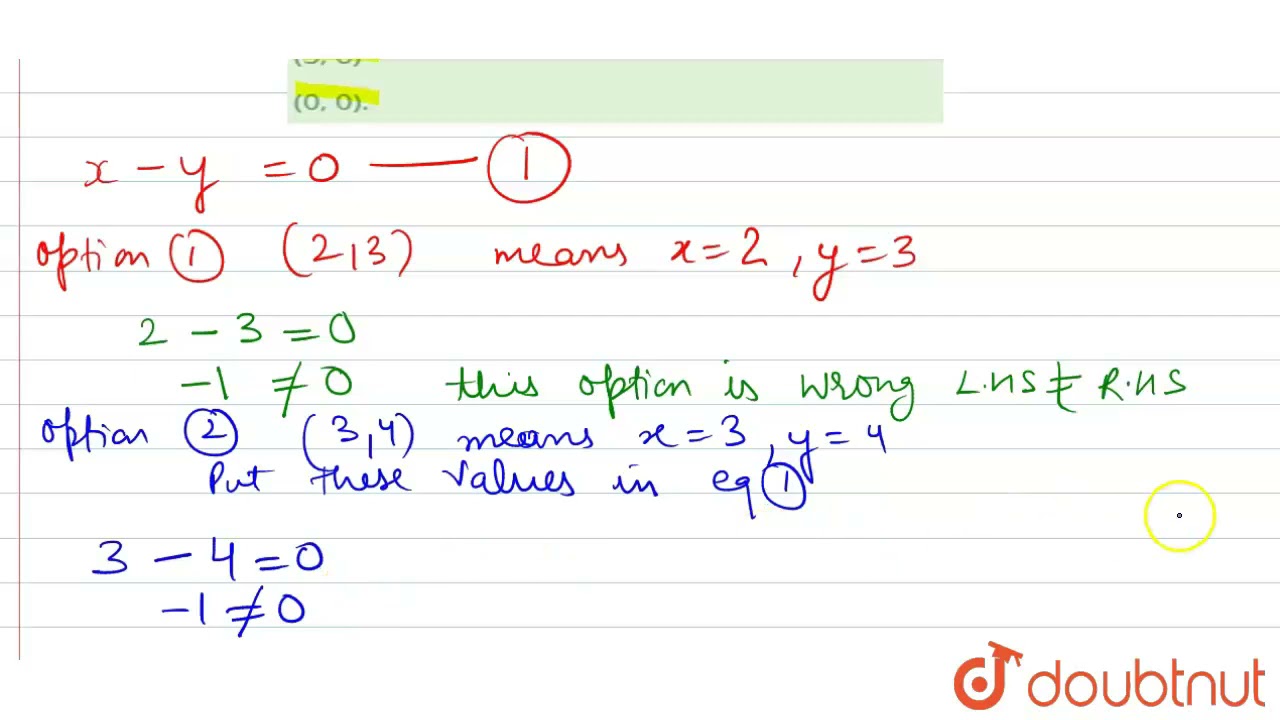 (0, 0).
x - y = 0 —— ①
option ① (2,3) means x = 2, y = 3
2 - 3 = 0
-1 ≠ 0 this option is wrong L.H.S ≠ R.H.S
option ② (3,4) means x = 3, y = 4
Put these values in eq ①
3 - 4 = 0
-1 ≠ 0
doubtnut